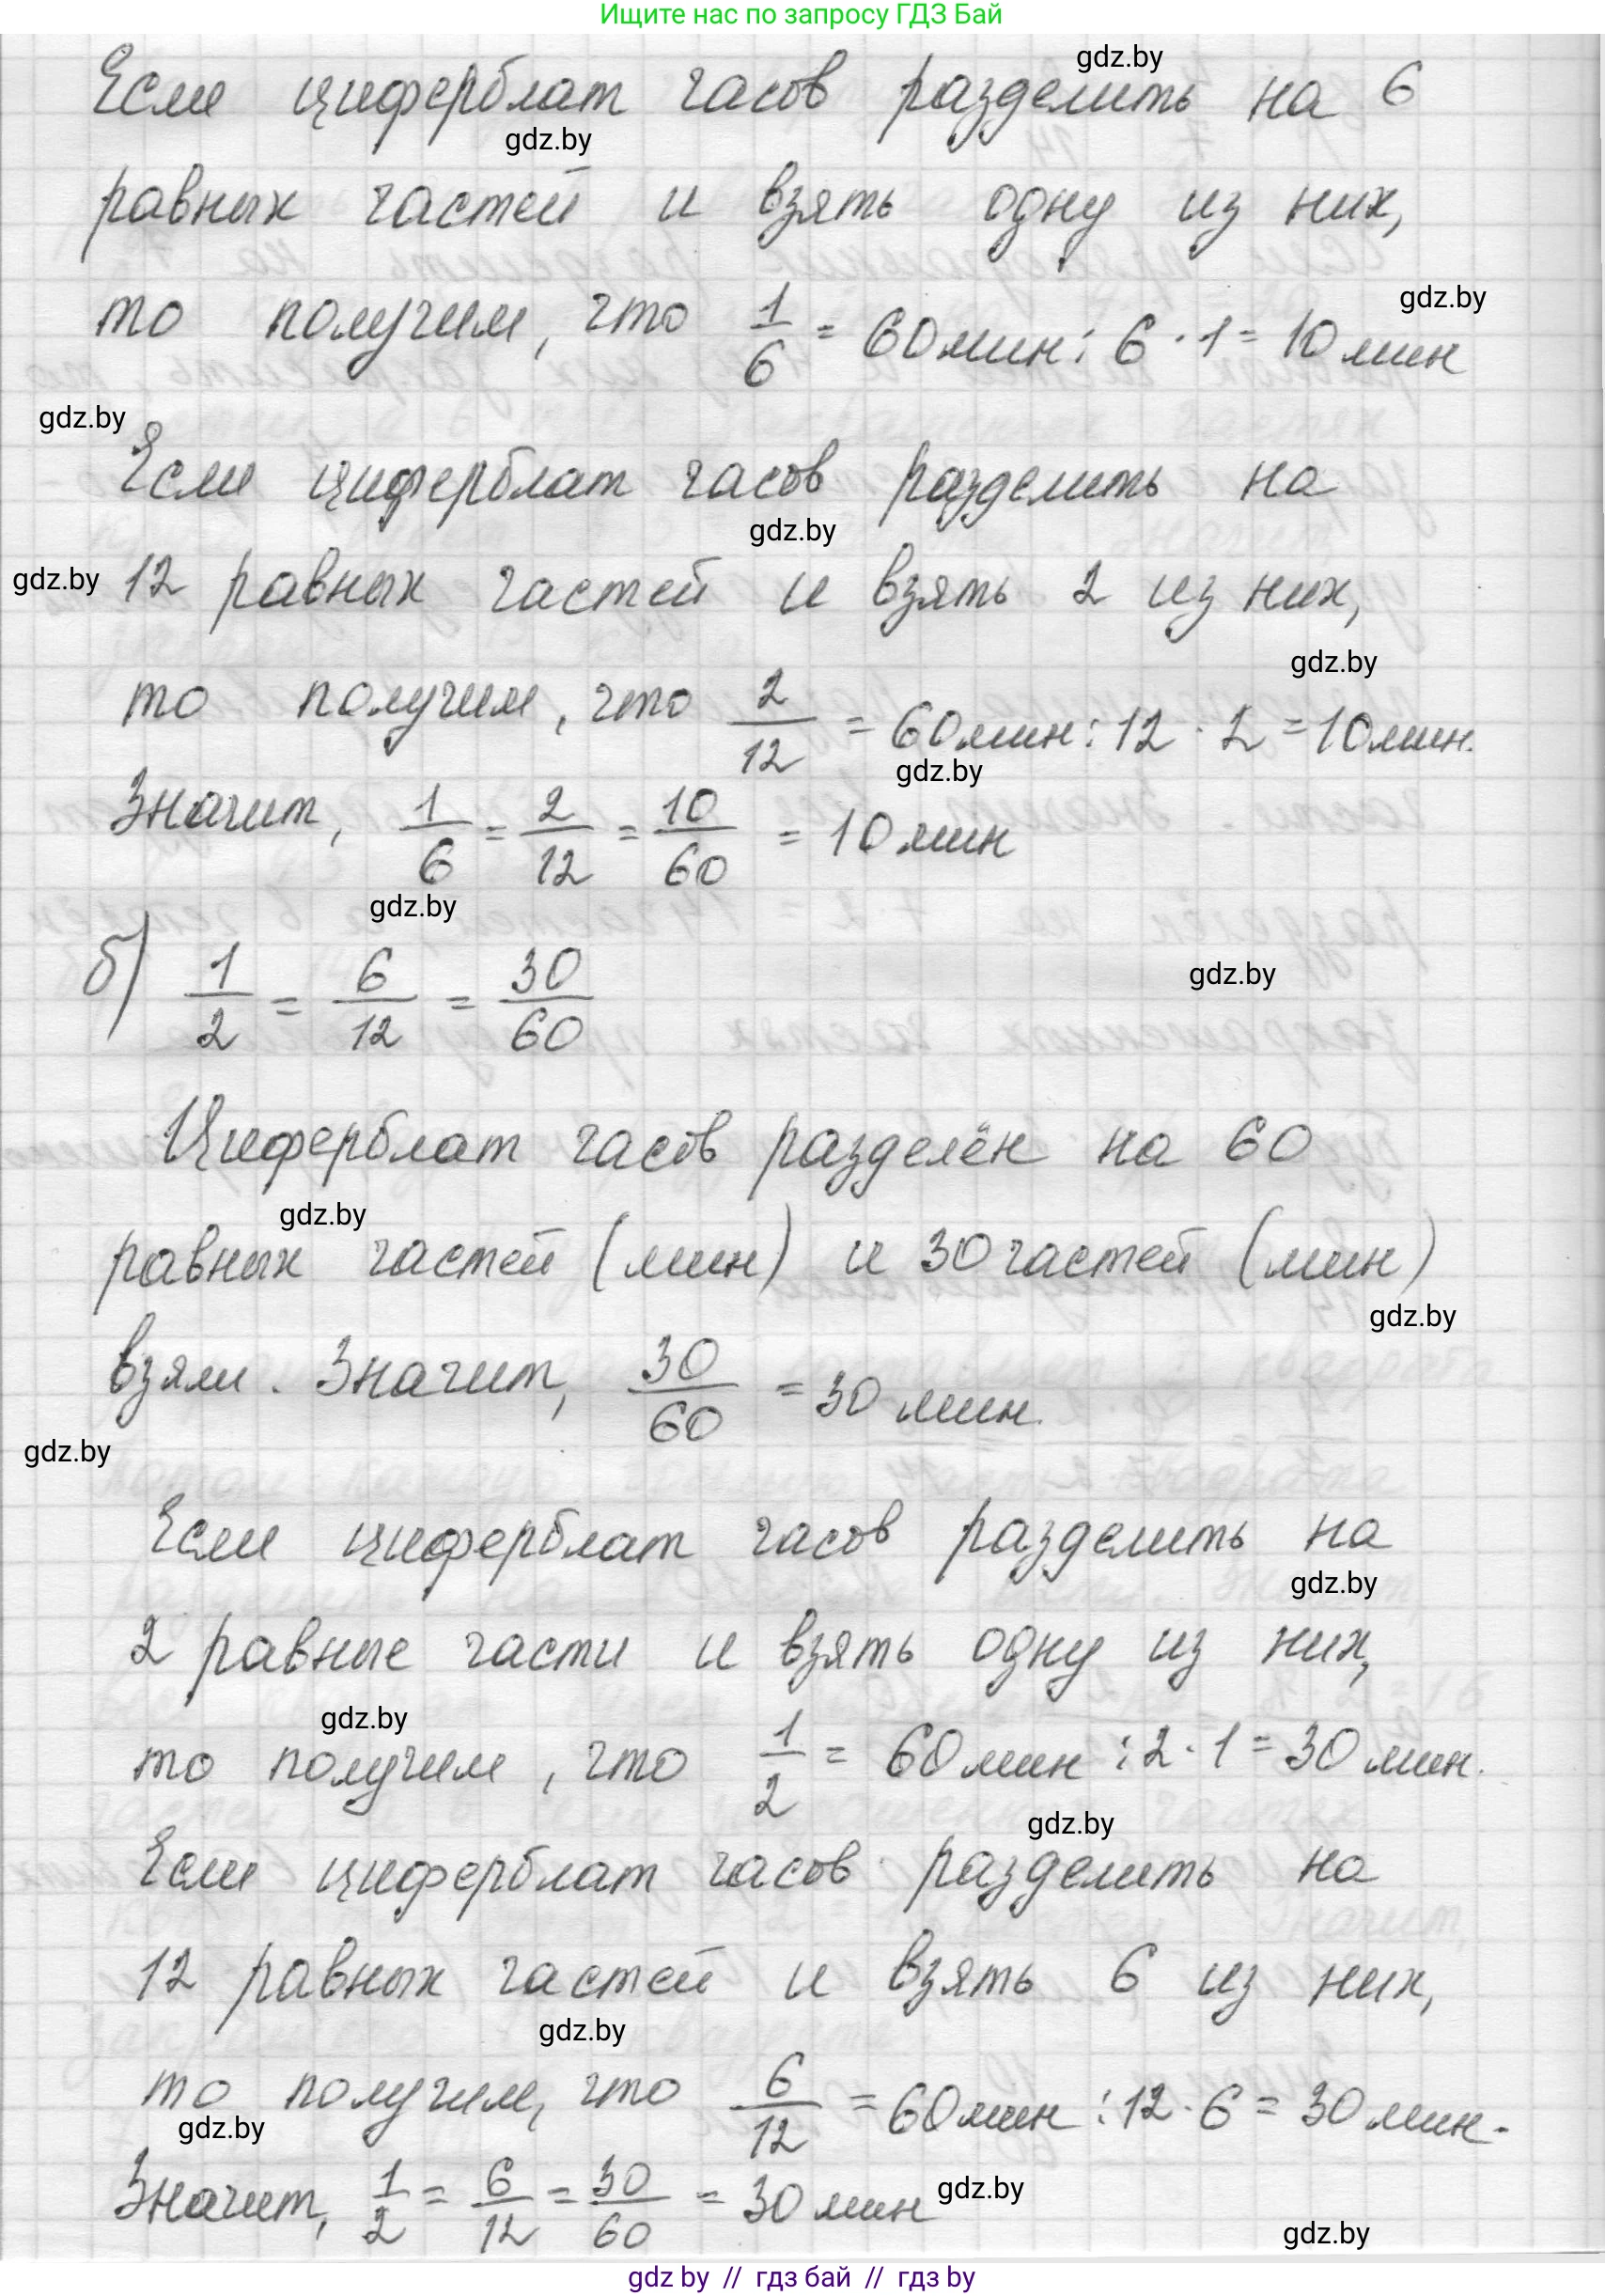 Ищите нас по запросу ГДЗ Бай
gdz.by
Если циферблат часов разделить на 6
gdz.by
равных частей и взять одну из них,
gdz.by
то получим, что 1/6 = 60мин : 6 · 1 = 10 мин
gdz.by
Если циферблат часов разделить на
gdz.by
gdz.by
12 равных частей и взять 2 из них,
gdz.by
то получим, что 2/12 = 60мин : 12 · 2 = 10мин.
gdz.by
Значит, 1/6 = 2/12 = 10/60 = 10 мин
gdz.by
б) 1/2 = 6/12 = 30/60
gdz.by
Циферблат часов разделён на 60
gdz.by
равных частей (мин) и 30 частей (мин)
gdz.by
взяли. Значит, 30/60 = 30 мин.
gdz.by
Если циферблат часов разделить на
gdz.by
2 равные части и взять одну из них,
gdz.by
то получим, что 1/2 = 60 мин : 2 · 1 = 30 мин.
gdz.by
Если циферблат часов разделить на
12 равных частей и взять 6 из них,
gdz.by
то получим, что 6/12 = 60мин : 12 · 6 = 30 мин.
gdz.by
Значит, 1/2 = 6/12 = 30/60 = 30 мин
gdz.by
gdz.by
gdz by // гдз бай // гдз by